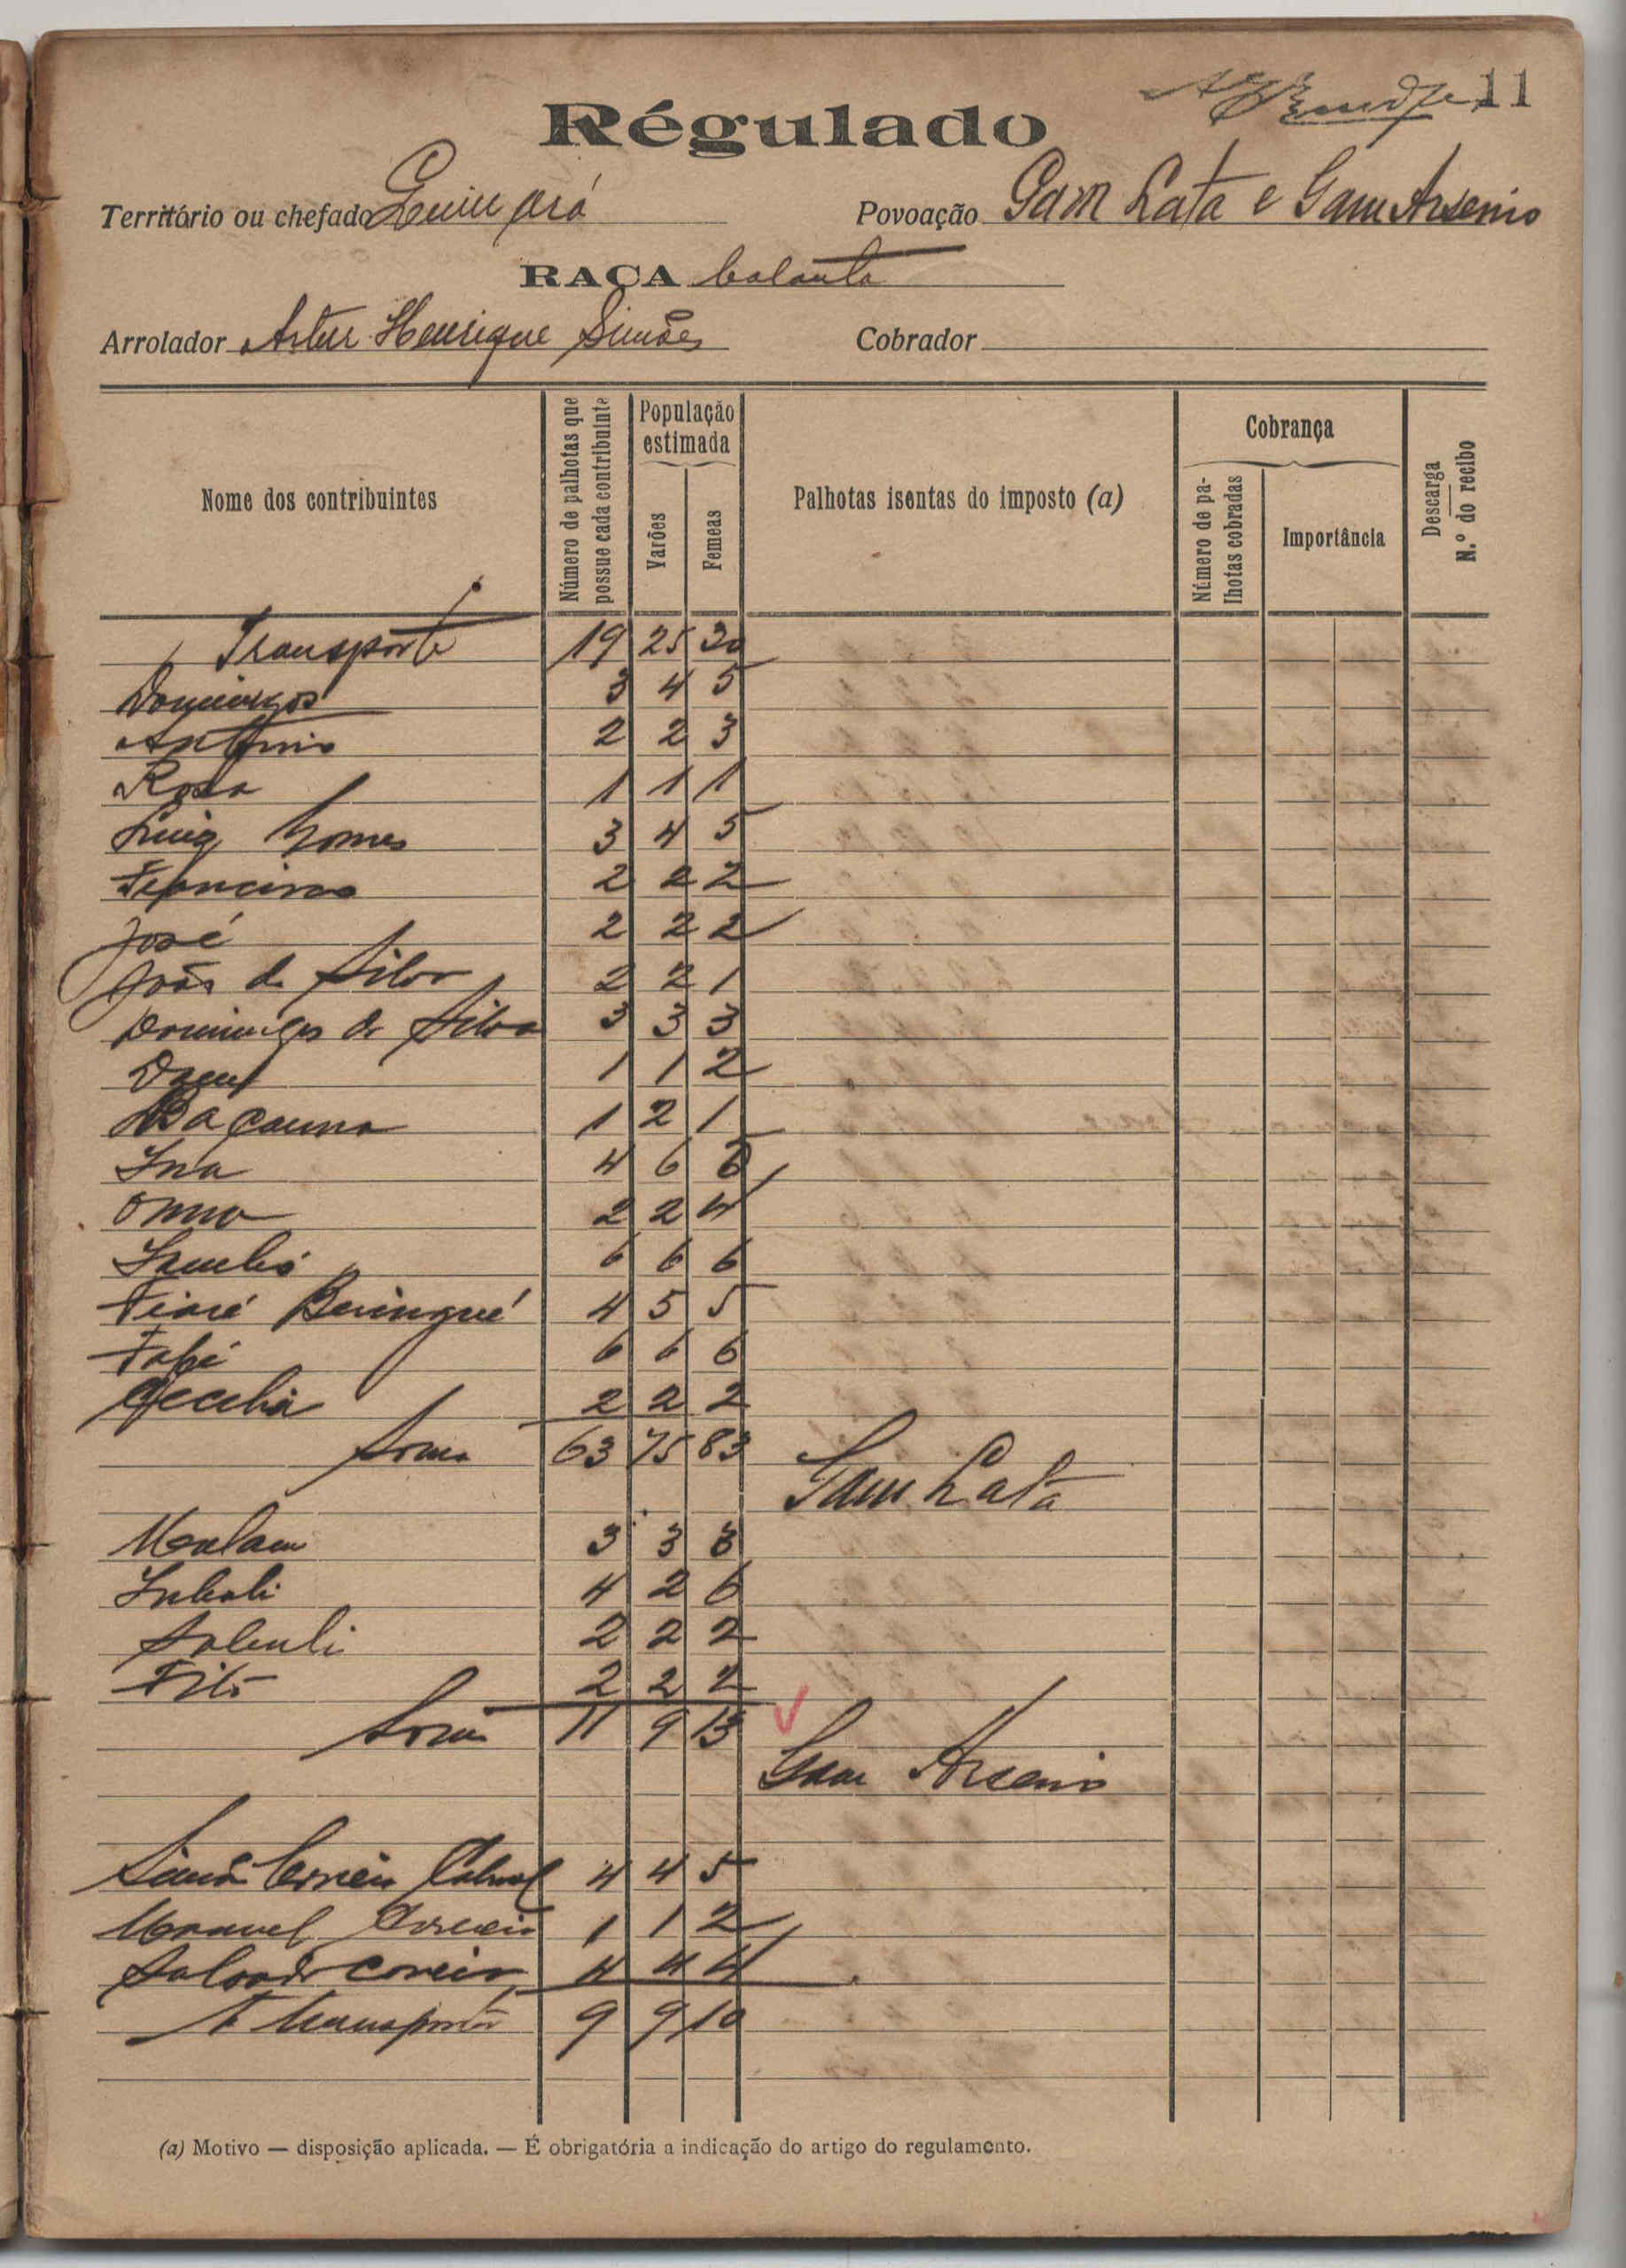 11
Régulado
Território ou chefado Cuim ará Povoação Gam Lata e Gam Arsenio
RAÇA balanta
Arrolador Artur Henrique Simões Cobrador
Nome dos contribuintes
Número de palhotas que possue cada contribuinte
População estimada
Varões
Femeas
Palhotas isentas do imposto (a)
Cobrança
Número de palhotas cobradas
Importância
Descarga
N.º do recibo
Transporte 19 25 30
Domingos 3 4 5
Antonio 2 2 3
Rosa 1 1 1
Luiz Gomes 3 4 5
Francisco 2 2 2
José 2 2 2
João da Silva 2 2 1
Domingos da Silva 3 3 3
1 1 2
1 2 1
Ina 4 6 6
Onna 2 2 4
6 6 6
4 5 5
Fafé 6 6 6
Cecelia 2 2 2
Soma 63 75 83
Gam Lata
Malam 3 3 3
4 2 6
2 2 2
2 2 2
Soma 11 9 13
Gam Arsenio
Simão Correia Cabral 4 4 5
Manuel Correia 1 1 2
Salvador Correia 4 4 4
A transportar 9 9 10
(a) Motivo — disposição aplicada. — É obrigatória a indicação do artigo do regulamento.